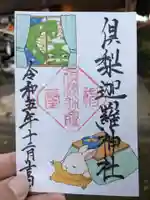 倶梨迦羅神社
令和五年十二月吉日